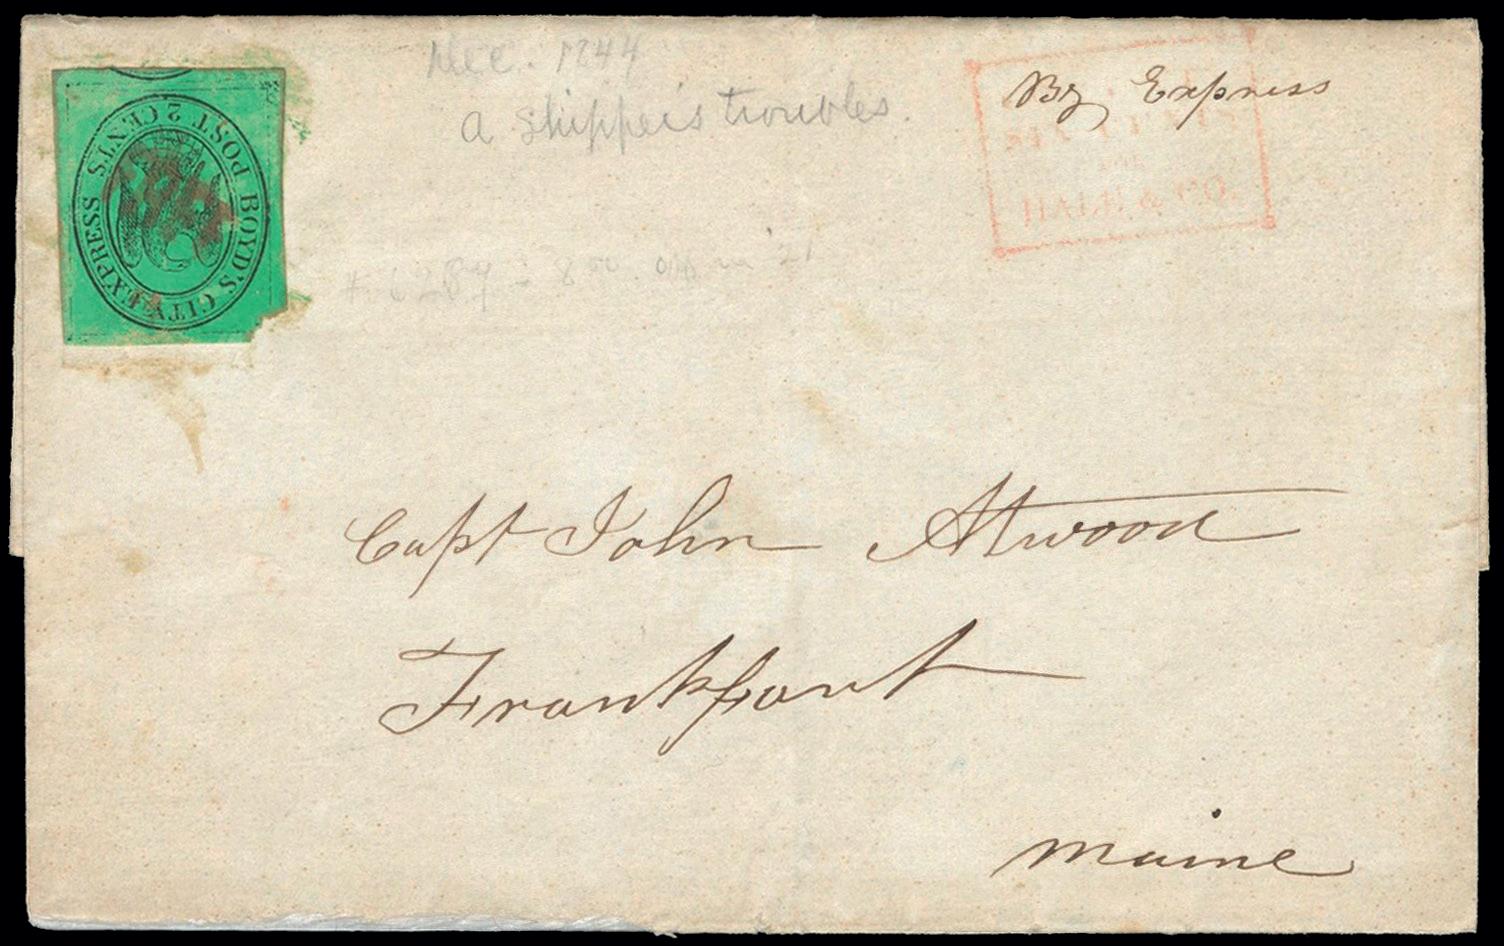 Dec. 1844
a shipper's troubles.
By Express
HALE & CO.
BOYD'S CITY EXPRESS POST. 2 CENTS
# 6287 -
Capt John Atwood
Frankfort
Maine